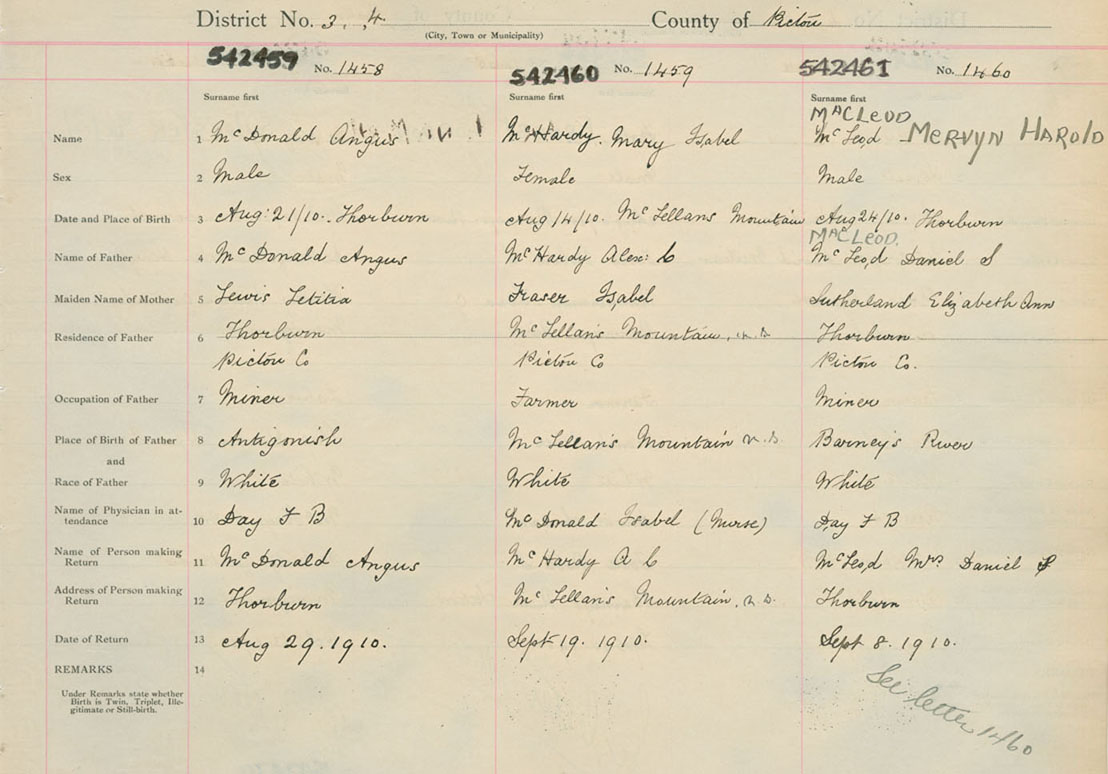 District No. 3, 4 County of Pictou
(City, Town or Municipality)
542459 No. 1458 542460 No. 1459 542461 No. 1460
Surname first Surname first Surname first
MACLEOD
Name 1 McDonald Angus McHardy. Mary Isabel McLeod MERVYN HAROLD
Sex 2 Male Female Male
Date and Place of Birth 3 Aug: 21/10. Thorburn Aug 14/10. McLellans Mountain Aug 24/10. Thorburn
MACLEOD.
Name of Father 4 McDonald Angus McHardy Alex: C McLeod Daniel S
Maiden Name of Mother 5 Lewis Letitia Fraser Isabel Sutherland Elizabeth Ann
Residence of Father 6 Thorburn McLellan's Mountain, N.S. Thorburn
Pictou Co Pictou Co Pictou Co.
Occupation of Father 7 Miner Farmer Miner
Place of Birth of Father 8 Antigonish McLellan's Mountain N.S. Barney's River
and
Race of Father 9 White White White
Name of Physician in at-
tendance 10 Day F B McDonald Isabel (Nurse) Day F B
Name of Person making
Return 11 McDonald Angus McHardy A C McLeod Mrs Daniel S
Address of Person making
Return 12 Thorburn McLellan's Mountain, N.S. Thorburn
Date of Return 13 Aug 29. 1910. Sept 19. 1910. Sept 8. 1910.
REMARKS 14
Under Remarks state whether
Birth is Twin, Triplet, Ille-
gitimate or Still-birth.
See letter 1460